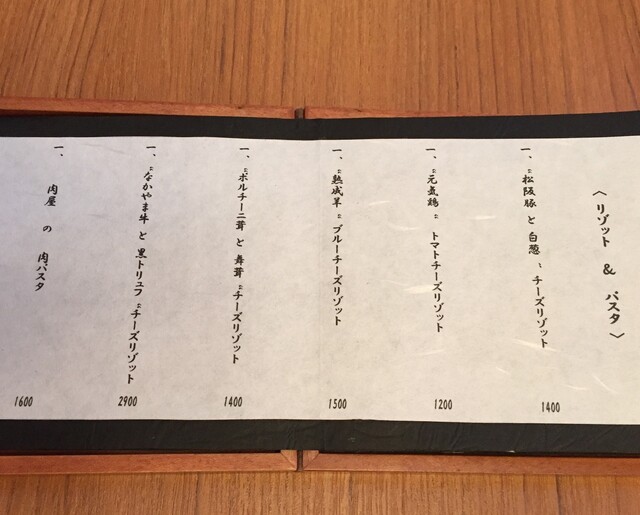 〈リゾット & パスタ〉
一、〝松阪豚 と 白葱〟チーズリゾット
1400
一、〝元気鶏〟トマトチーズリゾット
1200
一、〝熟成羊〟ブルーチーズリゾット
1500
一、〝ポルチーニ茸 と 舞茸〟チーズリゾット
1400
一、〝なかやま牛 と 黒トリュフ〟チーズリゾット
2900
一、肉屋 の 肉パスタ
1600